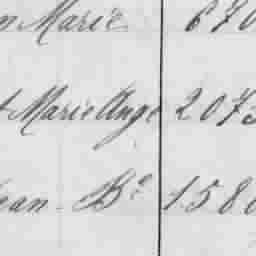 n Marie 670
t Marie Ange 2073
ean Bte 1580